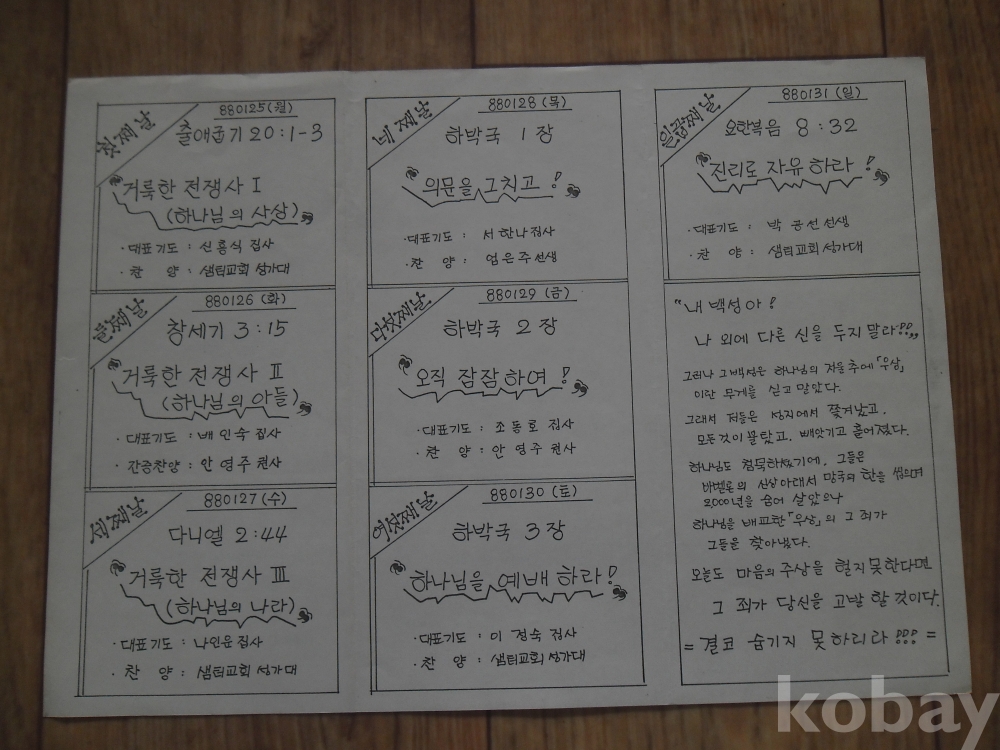 첫째날
880125(월)
출애굽기 20:1-3
거룩한 전쟁사 Ⅰ
(하나님의 사상)
·대표기도 : 신홍식 집사
·찬 양 : 샘터교회 성가대
둘째날
880126(화)
창세기 3:15
거룩한 전쟁사 Ⅱ
(하나님의 아들)
·대표기도 : 배인숙 집사
·찬양 : 안영주 권사
세째날
880127(수)
다니엘 2:44
거룩한 전쟁사 Ⅲ
(하나님의 나라)
·대표기도 : 나인윤 집사
·찬 양 : 샘터교회 성가대
네째날
880128(목)
하박국 1장
의문을 그치고!
·대표기도 : 서한나 집사
·찬 양 : 엄은주 선생
다섯째날
880129(금)
하박국 2장
오직 잠잠하여!
·대표기도 : 조동호 집사
·찬 양 : 안영주 권사
여섯째날
880130(토)
하박국 3장
하나님을 예배하라!
·대표기도 : 이정숙 집사
·찬 양 : 샘터교회 성가대
일곱째날
880131(일)
요한복음 8:32
진리로 자유하라!
·대표기도 : 박공선 선생
·찬 양 : 샘터교회 성가대
"내 백성아!
나 외에 다른 신을 두지 말라!!"
그러나 그 백성은 하나님의 저들 추에「우상」
이란 무게를 싣고 말았다.
그래서 저들은 성지에서 쫓겨났고,
모든것이 불탔고, 빼앗기고 흩어졌다.
하나님도 침묵하셨기에, 그들은
바벨론의 신상아래서 망국의 한을 씹으며
2,000년을 숨어 살았으나
하나님을 배교한「우상」의 그 죄가
그들을 찾아냈다.
오늘도 마음의 우상을 헐지 못한다면
그 죄가 당신을 고발할 것이다.
= 결코 숨기지 못하리라!!! =
kobay